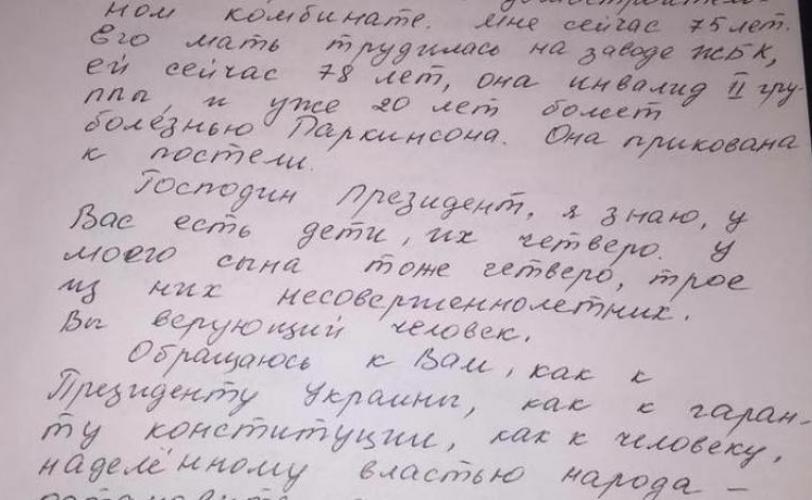 ном комбинате. Мне сейчас 75 лет.
Его мать трудилась на заводе ЖБК,
ей сейчас 78 лет, она инвалид II гру-
ппы, и уже 20 лет болеет
болезнью Паркинсона. Она прикована
к постели.
Господин президент, я знаю, у
Вас есть дети, их четверо. У
моего сына тоже четверо, трое
из них несовершеннолетних.
Вы верующий человек.
Обращаюсь к Вам, как к
Президенту Украины, как к гаран-
ту конституции, как к человеку,
наделённому властью народа –